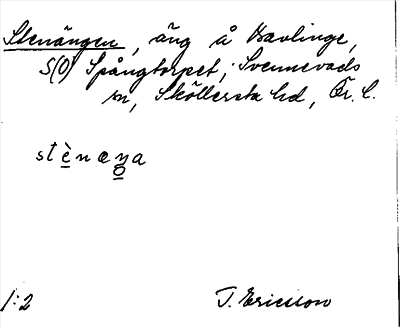 Stenängen, äng å Havlinge,
S(O) Spångtorpet, Svennevads
sn, Sköllersta hd, Ör. l.
stènæŋa
1:2
J. Ericsson